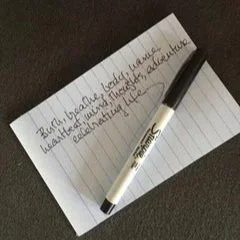 Birth, breathe, body, name,
heartbeat, mind, thoughts, adventure
celebrating life
Sharpie